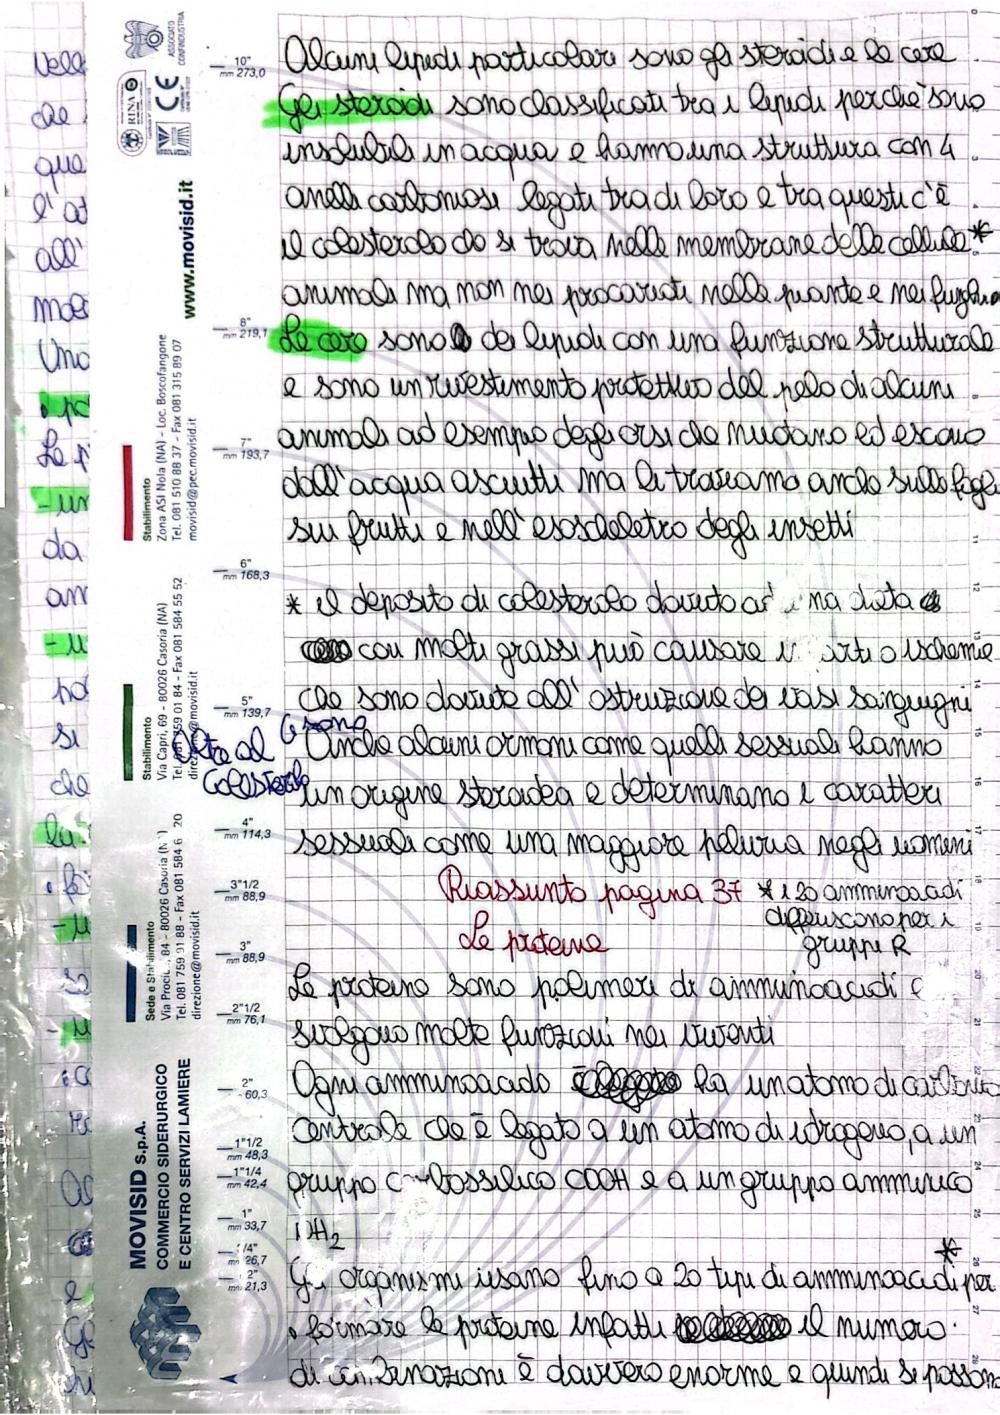 Alcuni lipidi particolari sono gli steroidi e le cere
Gli steroidi sono classificati tra i lipidi perché sono
insolubili in acqua e hanno una struttura con 4
anelli carboniosi legati tra di loro e tra questi c'è
il colesterolo che si trova nelle membrane delle cellule *
animali ma non nei procarioti nelle piante e nei funghi
Le cere sono dei lipidi con una funzione strutturale
e sono un rivestimento protettivo del pelo di alcuni
animali ad esempio degli orsi che nuotano ed escono
dall'acqua asciutti ma le troviamo anche sulle foglie
sui frutti e nell'esoscheletro degli insetti
* il deposito di colesterolo dovuto ad una dieta
con molti grassi può causare infarti o ischemie
che sono dovute all'ostruzione dei vasi sanguigni
Oltre al colesterolo ci sono
Anche alcuni ormoni come quelli sessuali hanno
un origine steroidea e determinano i caratteri
sessuali come una maggiore peluria negli uomini
Riassunto pagina 37
* i 20 amminoacidi
differiscono per i
gruppi R
Le proteine
Le proteine sono polimeri di amminoacidi e
svolgono molte funzioni nei viventi
Ogni amminoacido ha un atomo di carbonio
centrale che è legato a un atomo di idrogeno, a un
gruppo carbossilico COOH e a un gruppo amminico
NH2
Gli organismi usano fino a 20 tipi di amminoacidi * per
formare le proteine infatti il numero
di combinazioni è davvero enorme e quindi si possono
ASSOCIATO
CONFINDUSTRIA
RINA
CE
www.movisid.it
Stabilimento
Zona ASI Nola (NA) - Loc. Boscofangone
Tel. 081 510 88 37 - Fax 081 315 89 07
movisid@pec.movisid.it
Stabilimento
Via Capri, 69 - 80026 Casoria (NA)
Tel. 081 759 01 84 - Fax 081 584 55 52
direzione@movisid.it
Sede e Stabilimento
84 - 80026 Casoria
Tel. 081 759 01 88 - Fax 081 584 6 20
direzione@movisid.it
MOVISID s.p.A.
COMMERCIO SIDERURGICO
E CENTRO SERVIZI LAMIERE
10"
mm 273,0
8"
mm 219,1
7"
mm 193,7
6"
mm 168,3
5"
mm 139,7
4"
mm 114,3
3"1/2
mm 88,9
3"
mm 88,9
2"1/2
mm 76,1
2"
60,3
1"1/2
mm 48,3
1"1/4
mm 42,4
1"
mm 33,7
mm 26,7
mm 21,3